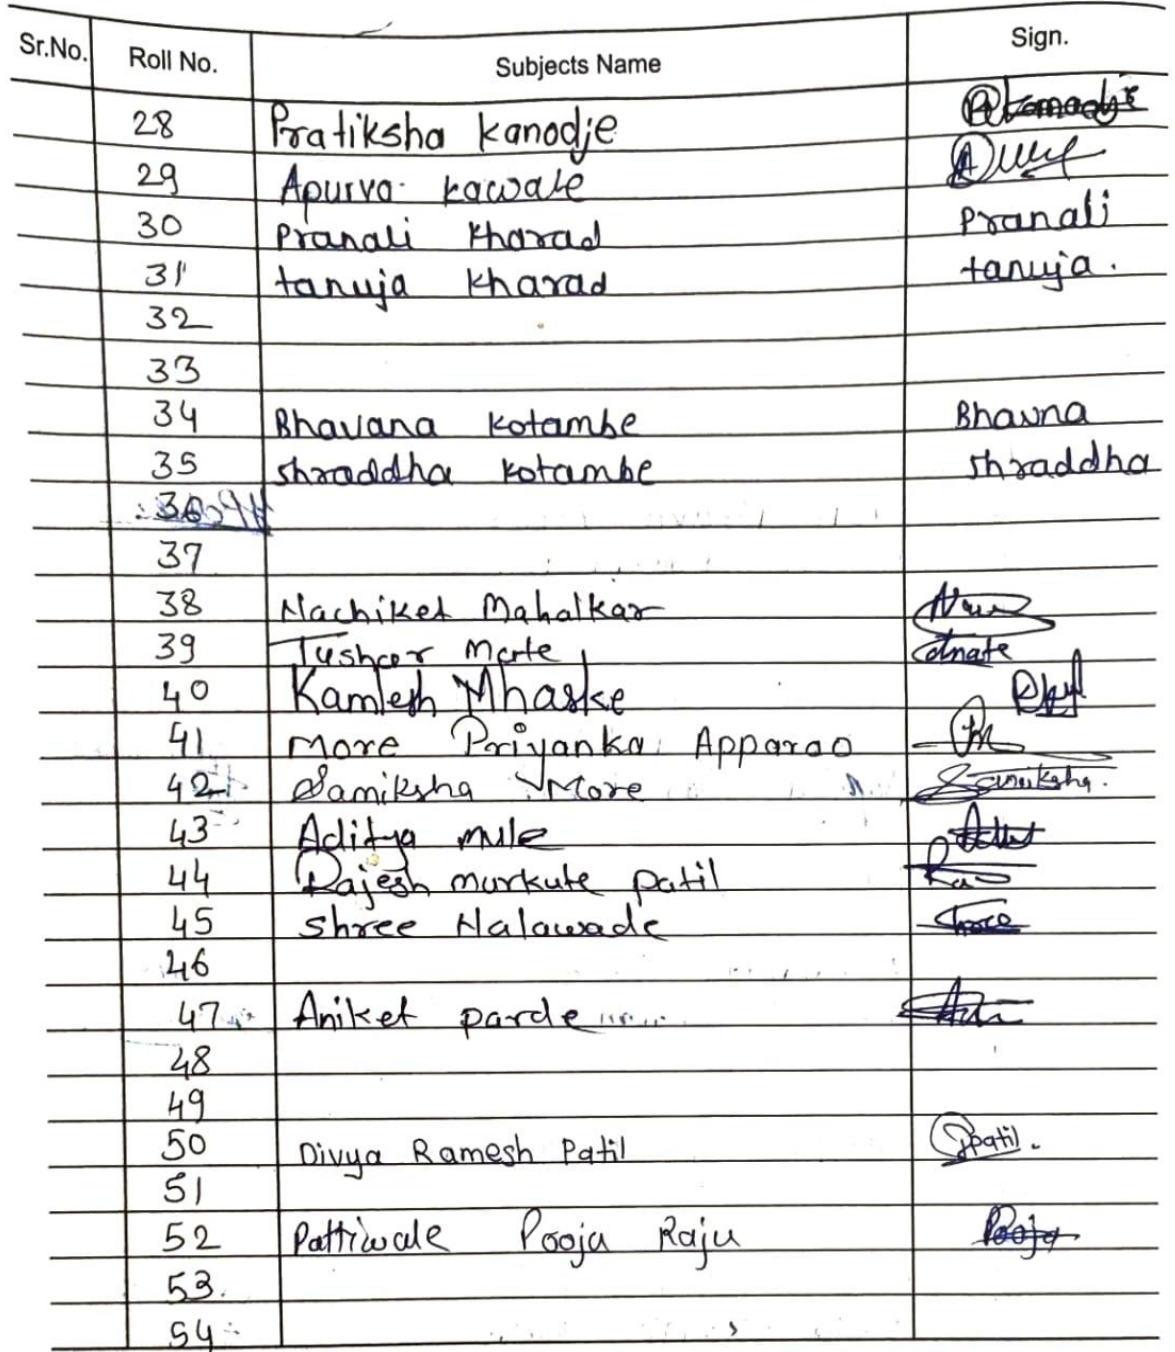 Sr.No. Roll No. Subjects Name Sign.
28 Pratiksha Kanodje
29 Apurva Kawale
30 Pranali Kharad Pranali
31 tanuja Kharad tanuja.
32
33
34 Bhavana Kotambe Bhavna
35 Shraddha Kotambe Shraddha
36
37
38 Nachiket Mahalkar
39 Tushar Mate
40 Kamlesh Mhaske
41 More Priyanka Apparao
42 Samiksha More Samiksha.
43 Aditya mule
44 Rajesh murkute patil
45 Shree Nalawade Shree
46
47 Aniket parde
48
49
50 Divya Ramesh Patil Dpatil.
51
52 Pattiwale Pooja Raju Pooja
53.
54